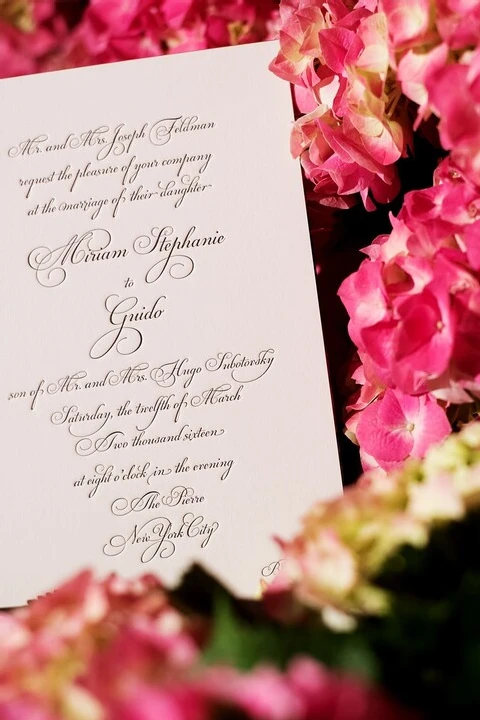 Mr. and Mrs. Joseph Feldman
request the pleasure of your company
at the marriage of their daughter
Miriam Stephanie
to
Guido
son of Mr. and Mrs. Hugo Subotovsky
Saturday, the twelfth of March
Two thousand sixteen
at eight o'clock in the evening
The Pierre
New York City